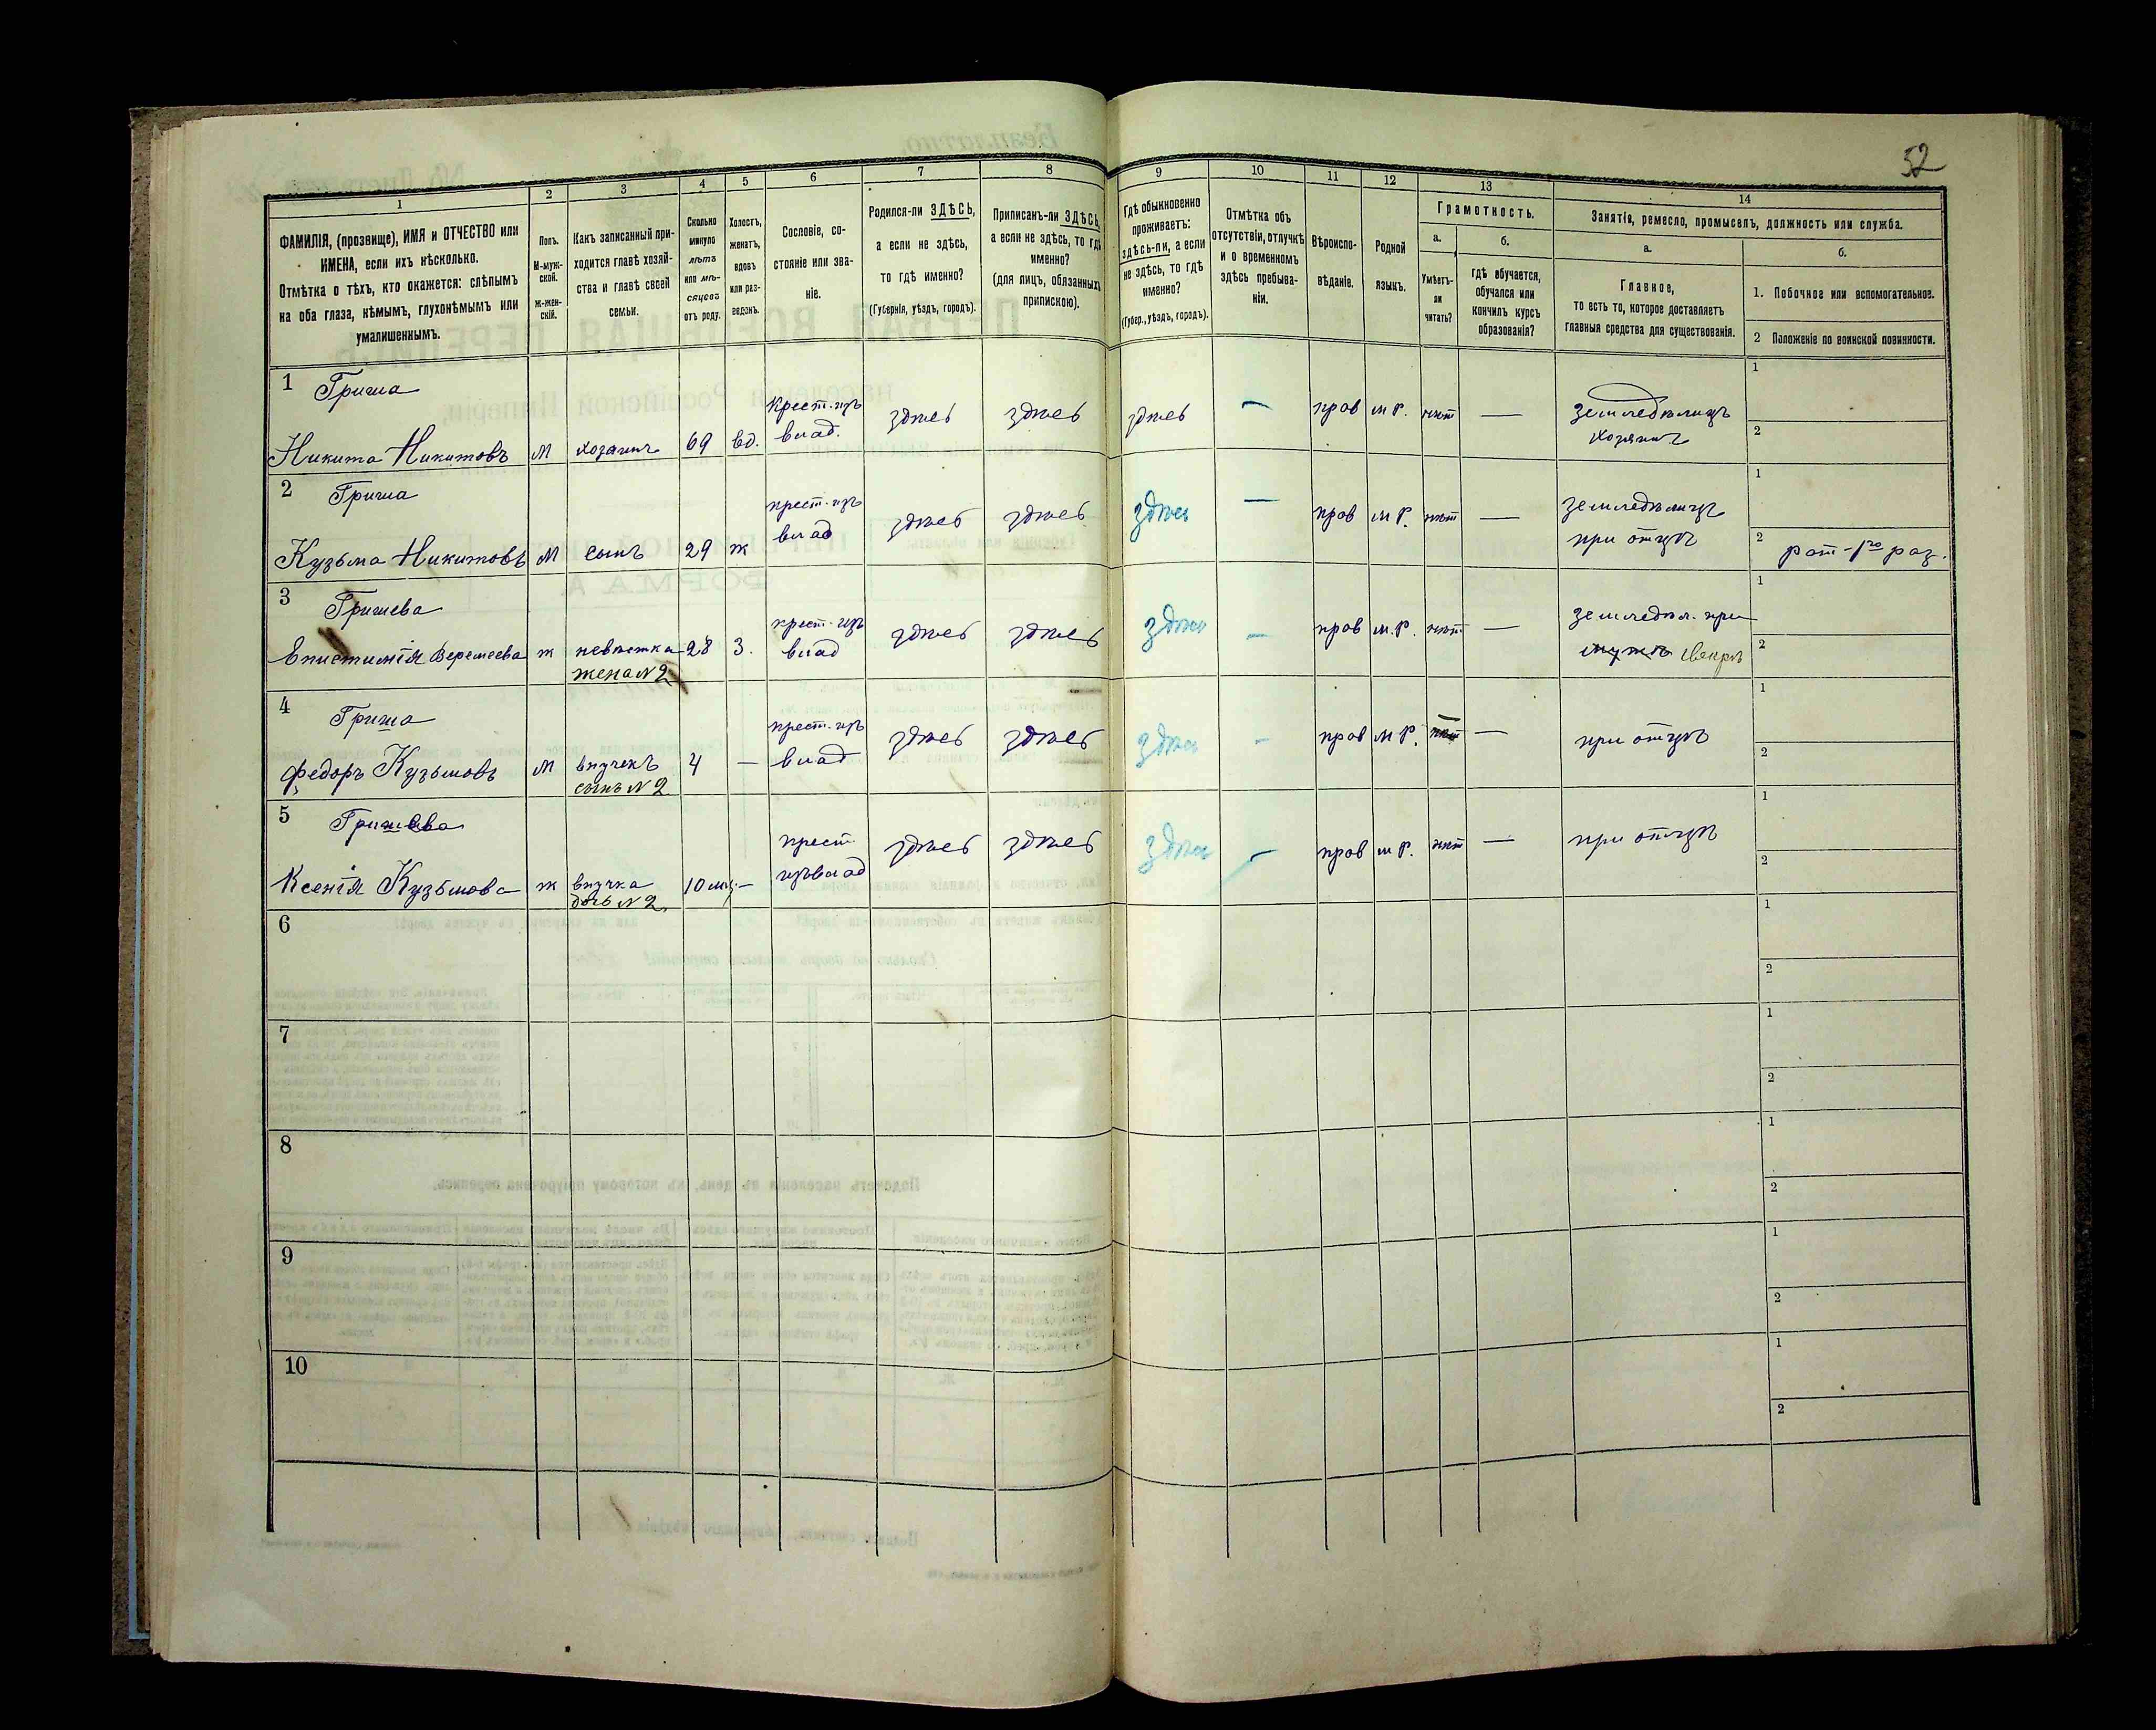 52
1
2
3
4
5
6
7
8
9
10
11
12
13
14
ФАМИЛІЯ, (прозвище), ИМЯ и ОТЧЕСТВО или
ИМЕНА, если ихъ нѣсколько.
Отмѣтка о тѣхъ, кто окажется: слѣпымъ
на оба глаза, нѣмымъ, глухонѣмымъ или
умалишеннымъ.
Полъ.
М-муж-
ской.
Ж-жен-
скій.
Какъ записанный при-
ходится главѣ хозяй-
ства и главѣ своей
семьи.
Сколько
минуло
лѣтъ
или мѣ-
сяцевъ
отъ роду.
Холостъ,
женатъ,
вдовъ
или раз-
веденъ.
Сословіе, со-
стояніе или зва-
ніе.
Родился-ли ЗДѢСЬ,
а если не здѣсь,
то гдѣ именно?
(Губернія, уѣздъ, городъ).
Приписанъ-ли ЗДѢСЬ,
а если не здѣсь, то гдѣ
именно?
(для лицъ, обязанныхъ
припискою).
Гдѣ обыкновенно
проживаетъ:
здѣсь-ли, а если
не здѣсь, то гдѣ
именно?
(Губер., уѣздъ, городъ).
Отмѣтка объ
отсутствіи, отлучкѣ
и о временномъ
здѣсь пребыва-
ніи.
Вѣроиспо-
вѣданіе.
Родной
языкъ.
Грамотность.
а.
Умѣетъ-
ли
читать?
б.
гдѣ обучается,
обучался или
кончилъ курсъ
образованія?
Занятіе, ремесло, промыселъ, должность или служба.
а.
Главное,
то есть то, которое доставляетъ
главныя средства для существованія.
б.
1. Побочное или вспомогательное.
2 Положеніе по воинской повинности.
1 Гриша
Никита Никитовъ М хозяинъ 69 вд. крест. изъ влад. здѣсь здѣсь здѣсь — прав м.р. нѣт — земледѣлецъ хозяинъ 1 2
2 Гриша
Кузьма Никитовъ М сынъ 29 ж крест. изъ влад здѣсь здѣсь здѣсь — прав м.р. нѣт — земледѣлецъ при отцѣ 1 2 рат-1го раз.
3 Гришева
Епистимія Веремеева ж невѣстка жена N 2 28 З. крест. изъ влад здѣсь здѣсь здѣсь — прав м.р. нѣт — земледѣл. при мужѣ свекрѣ 1 2
4 Гриша
Федоръ Кузьмовъ М внучекъ сынъ N 2 4 — крест. изъ влад здѣсь здѣсь здѣсь — прав м.р. нѣт — при отцѣ 1 2
5 Гришева
Ксенія Кузьмова ж внучка дочь N 2 10 мц. — крест. изъ влад здѣсь здѣсь здѣсь — прав м.р. нѣт — при отцѣ 1 2
6 1 2
7 1 2
8 1 2
9 1 2
10 1 2